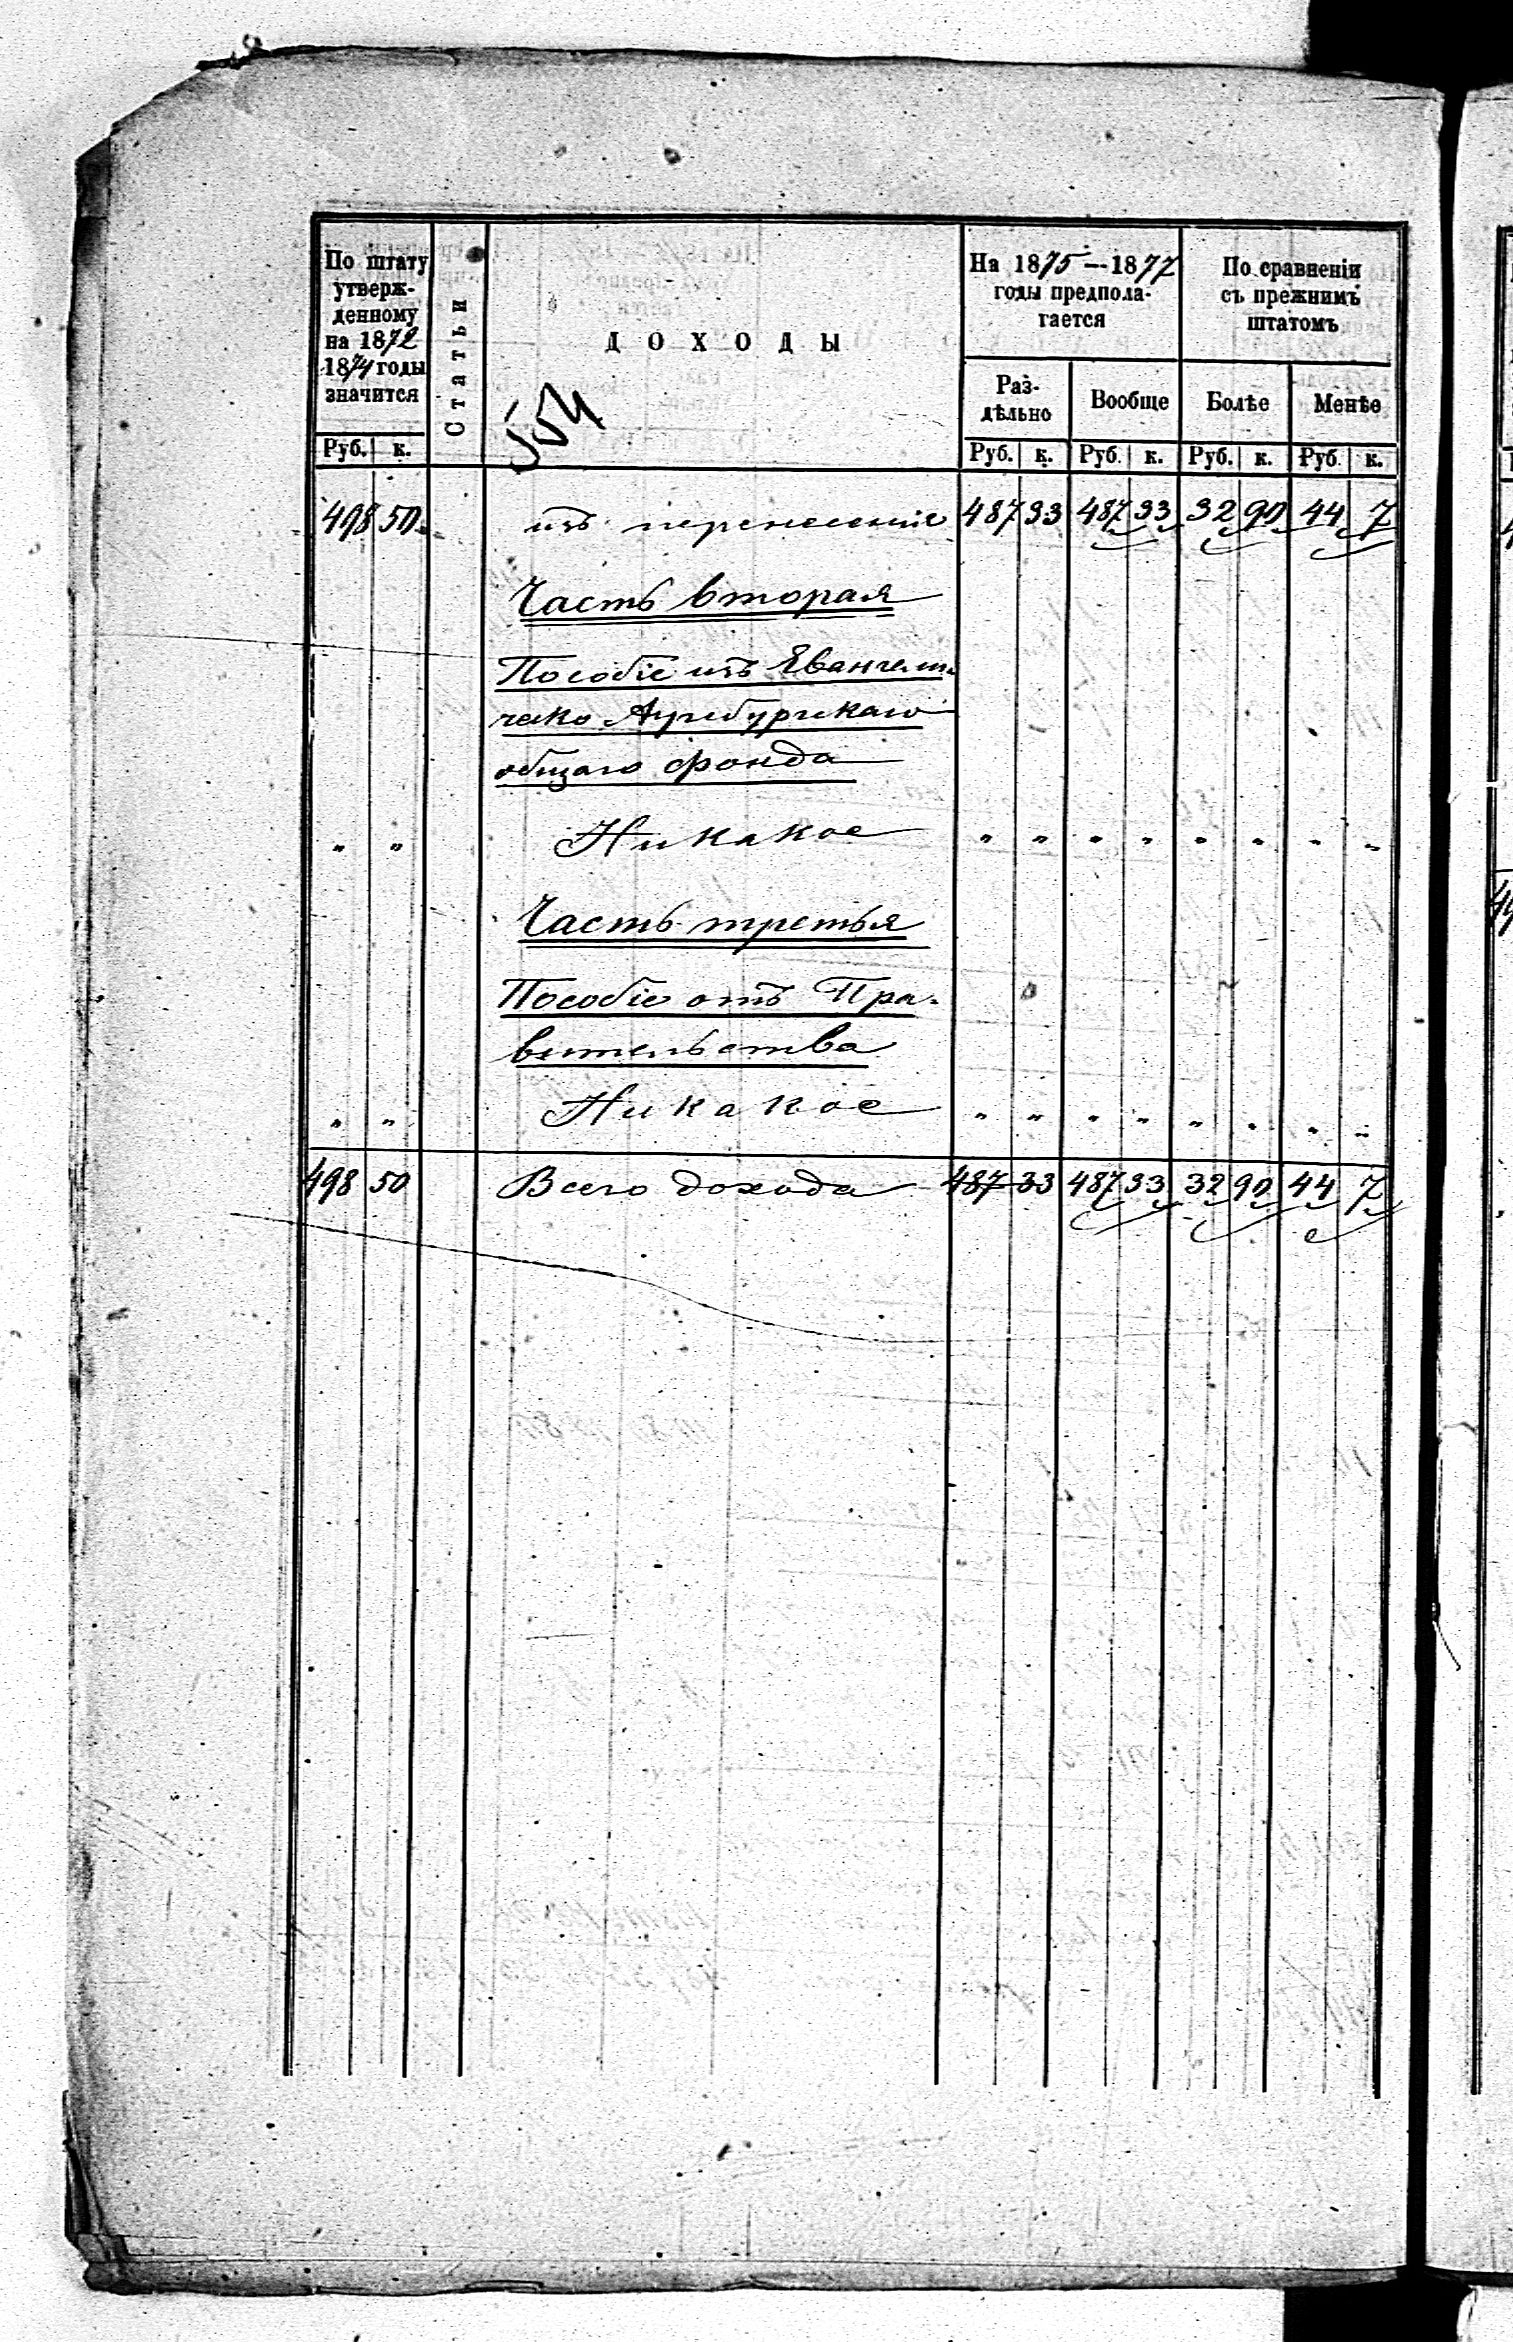 По штату
утверж-
денному
на 1872
1874 годы
значится
Руб. к.
Статьи
ДОХОДЫ
554
На 1875—1877
годы предпола-
гается
Раз-
дѣльно
Руб. к.
Вообще
Руб. к.
По сравненіи
съ прежнимъ
штатомъ
Болѣе
Руб. к.
Менѣе
Руб. к.
498 50 изъ перенесенія 487 33 487 33 32 90 44 7
Часть вторая
Пособіе изъ Евангели-
ческо Аугсбургскаго
общаго фонда
" " Никакое " " " " " " " "
Часть третья
Пособіе отъ Пра-
вительства
" " Никакое " " " " " " " "
498 50 Всего дохода 487 33 487 33 32 90 44 7